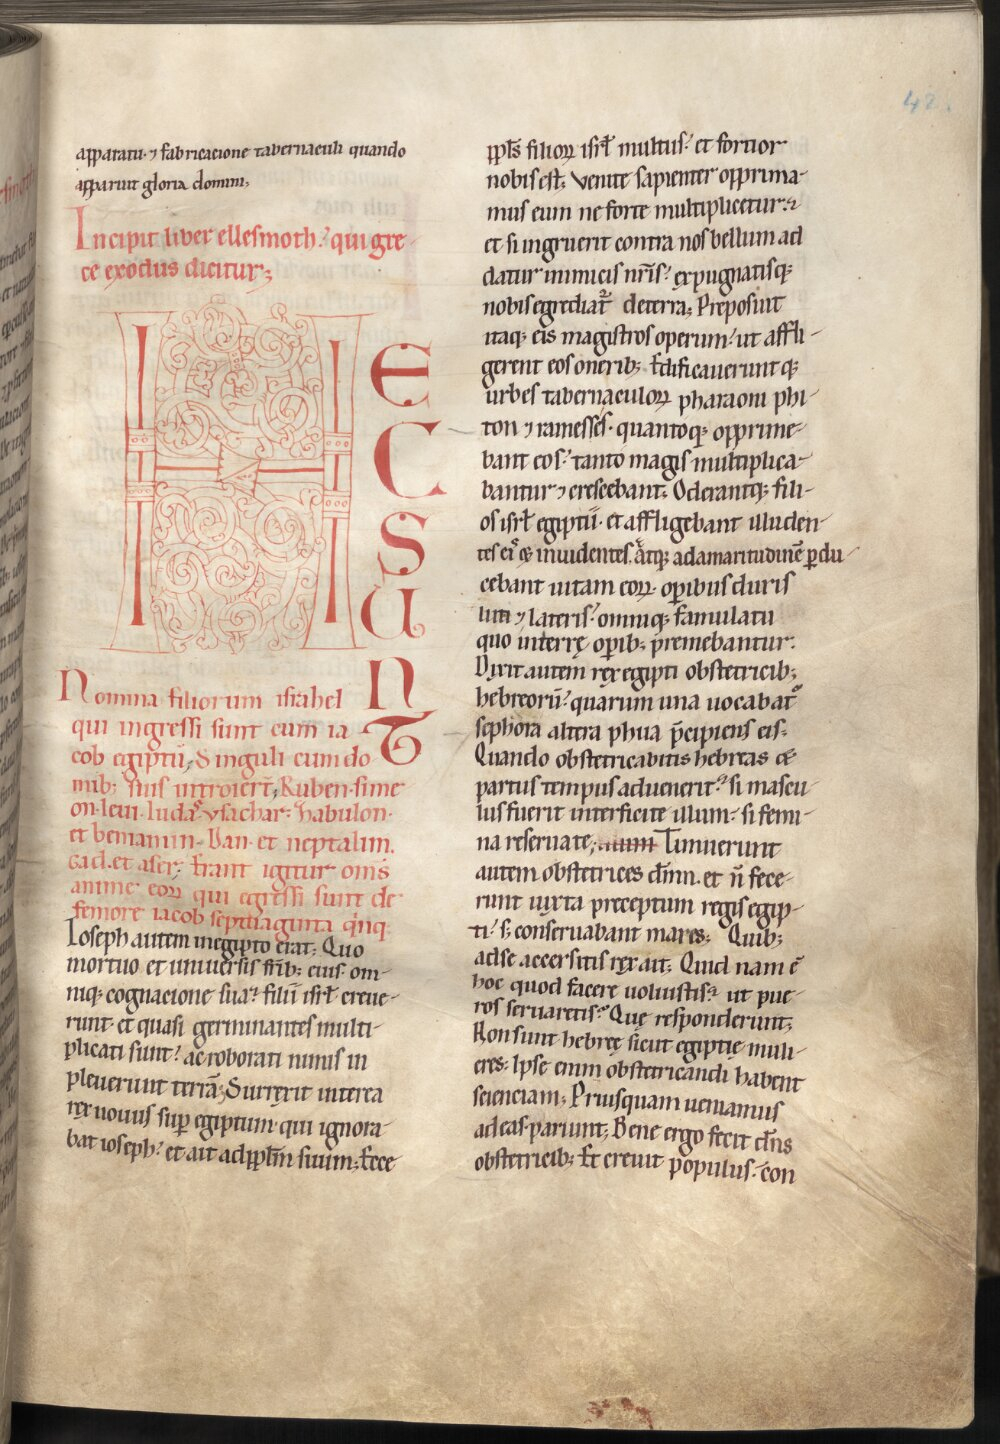 42.
apparatu· ⁊ fabricacione tabernaculi quando
apparuit gloria domini;
Incipit liber ellesmoth· qui gre-
ce exodus dicitur;
HEC SUNT
Nomina filiorum israhel
qui ingressi sunt cum ia
cob egiptū; Singuli cum do
mib; suis introierт̄; Ruben· sime
on· leui· Iuda· ysachar· zabulon·
et beniamin· Dan· et neptalim.
Gad. et aser; Erant igitur om̄s
anime eoꝝ qui egressi sunt de
femore iacob septuaginta q̇nq;
Ioseph autem in egipto erat; Quo
mortuo et uniuersis fr̄ib; eius· om-
niq; cognacione sua· filii isrł creue-
runt· et quasi germinantes multi-
plicati sunt· ac roborati nimis in
pleuerunt terrā; Surrexit interea
rex nouus suꝑ egiptum· qui ignora-
bat ioseph· et ait ad ppl̄m suum; Ecce
ppl̄s filioꝝ isrł multus· et fortior
nobis est; Venite sapienter opprima-
mus eum ne forte multiplicetur·
et si ingruerit contra nos bellum ad
datur inimicis nr̄is· expugnatisq;
nobis egrediat᷑ de terra; Preposuit
itaq; eis magistros operum· ut affli-
gerent eos onerib; Edificaueruntq;
urbes tabernaculoꝝ pharaoni phi-
ton ⁊ ramesses· quantoq; opprime-
bant eos· tanto magis multiplica-
bantur ⁊ crescebant; Oderantq; fili-
os isrł egiptii· et affligebant illuden-
tes eis ⁊ inuidentes. atq; ad amaritudinē ꝑdu-
cebant uitam eoꝝ· oꝑibus duris
luti ⁊ lateris· omniq; famulatu
quo in terrę oꝑib; premebantur·
Dixit autem rex egipti obstetricib;
hebreorū· quarum una uocabat᷑
sephora altera phua p̄cipiens eis·
Quando obstetricabitis hebreas et
partus tempus aduenerit· si mascu
lus fuerit interficite illum· si femi-
na reseruate; Timuerunt
autem obstetrices dm̄. et n̄ fece-
runt iuxta preceptum regis egip-
ti· s; conseruabant mares; Quib;
ad se accersitis rex ait; Quid nam ē
hoc quod facere uoluistis· ut pue-
ros seruaretis· Quę responderunt;
Non sunt hebrę sicut egiptię muli-
eres· Ipse enim obstetricandi habent
scienciam; Priusquam ueniamus
ad eas pariunt; Bene ergo fecit dn̄s
obstetricib; Et creuit populus· con